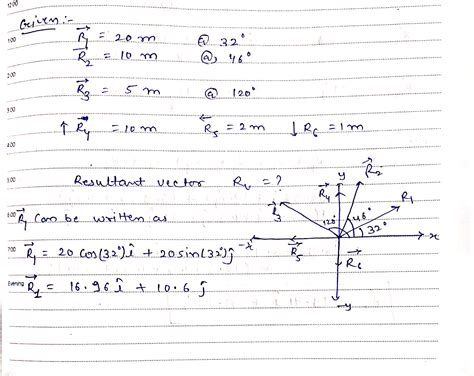 12:00
Given :-
1:00
R₁ = 20 m @ 32°
R₂ = 10 m @, 46°
2:00
R₃ = 5 m @ 120°
3:00
↑ R₄ = 10 m R₅ = 2 m ↓ R₆ = 1 m
4:00
5:00
Resultant vector Rᵥ = ?
6:00
R₁ can be written as
7:00
R₁ = 20 cos(32°) î + 20 sin(32°) ĵ
Evening
R₁ = 16.96 î + 10.6 ĵ
y
R₂
R₄
R₁
R₃
120°
46°
32°
-x
x
R₅
R₆
-y